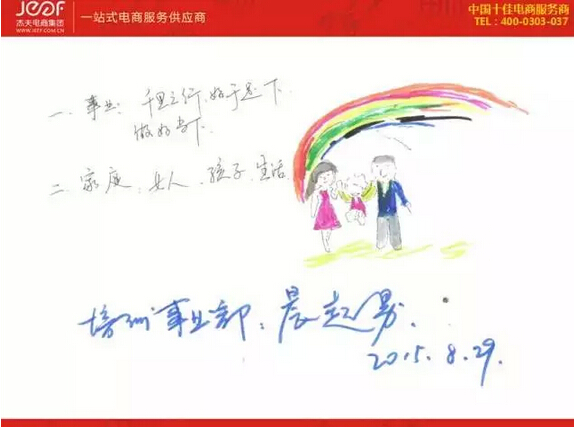 JEOF
杰夫电商集团
WWW.JEOF.COM.CN
一站式电商服务供应商
中国十佳电商服务商
TEL：400-0303-037
一、事业：千里之行，始于足下
做好当下.
二、家庭：女人、孩子、生活
培训事业部：晨起男.
2015.8.29.